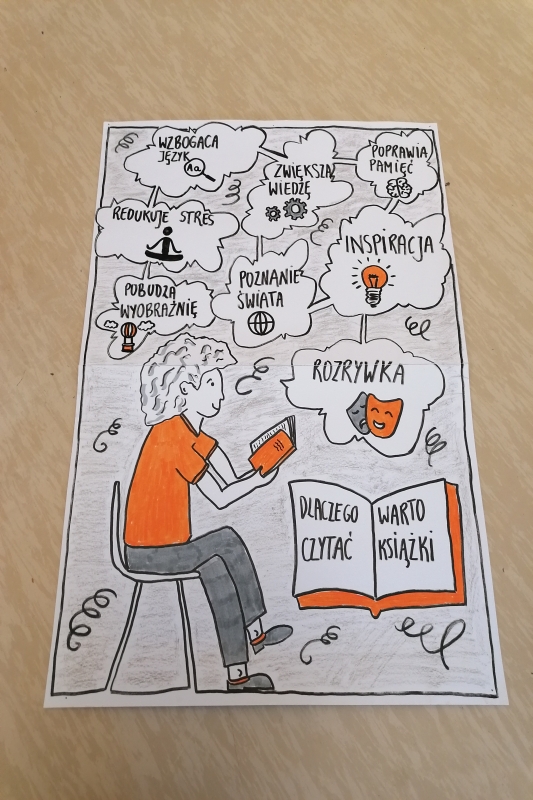 WZBOGACA
JĘZYK
Aa
ZWIĘKSZA
WIEDZĘ
POPRAWIA
PAMIĘĆ
REDUKUJE STRES
INSPIRACJA
POBUDZA
WYOBRAŹNIĘ
POZNANIE
ŚWIATA
ROZRYWKA
DLACZEGO WARTO
CZYTAĆ KSIĄŻKI